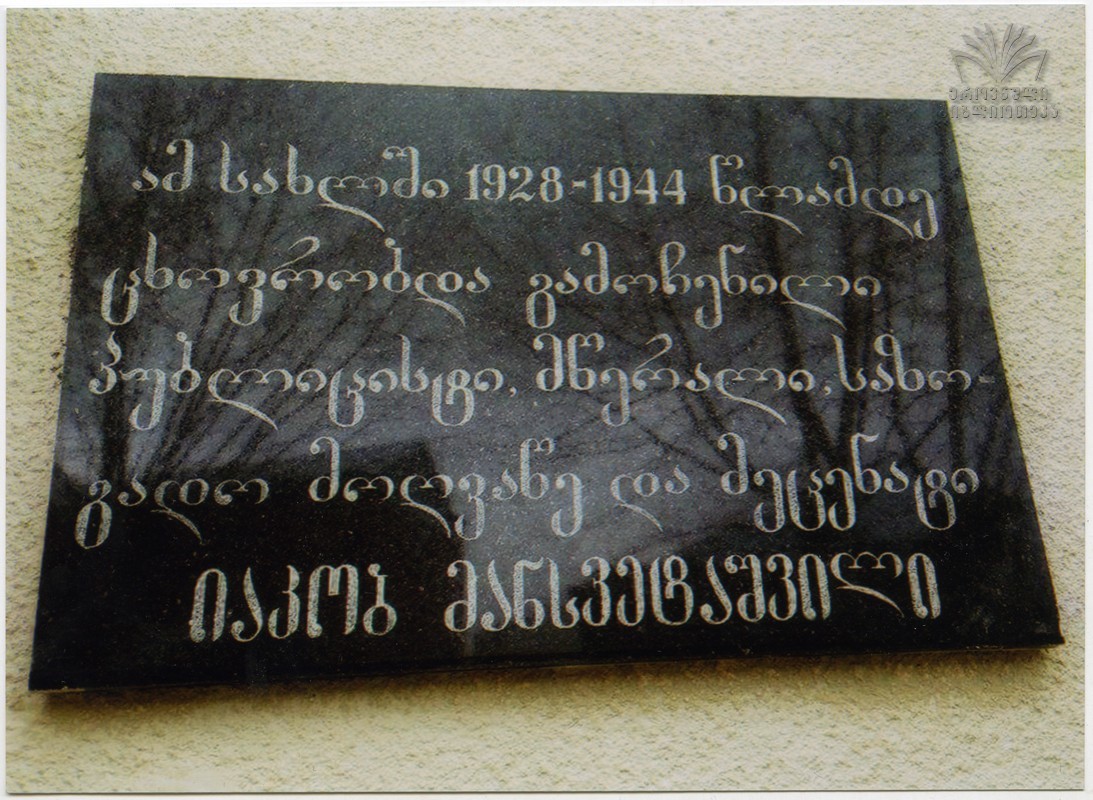 ეროვნული
ბიბლიოთეკა
ამ სახლში 1928-1944 წლამდე
ცხოვრობდა გამოჩენილი
პუბლიცისტი, მწერალი, საზო-
გადო მოღვაწე და მეცენატი
იაკობ მანსვეტაშვილი